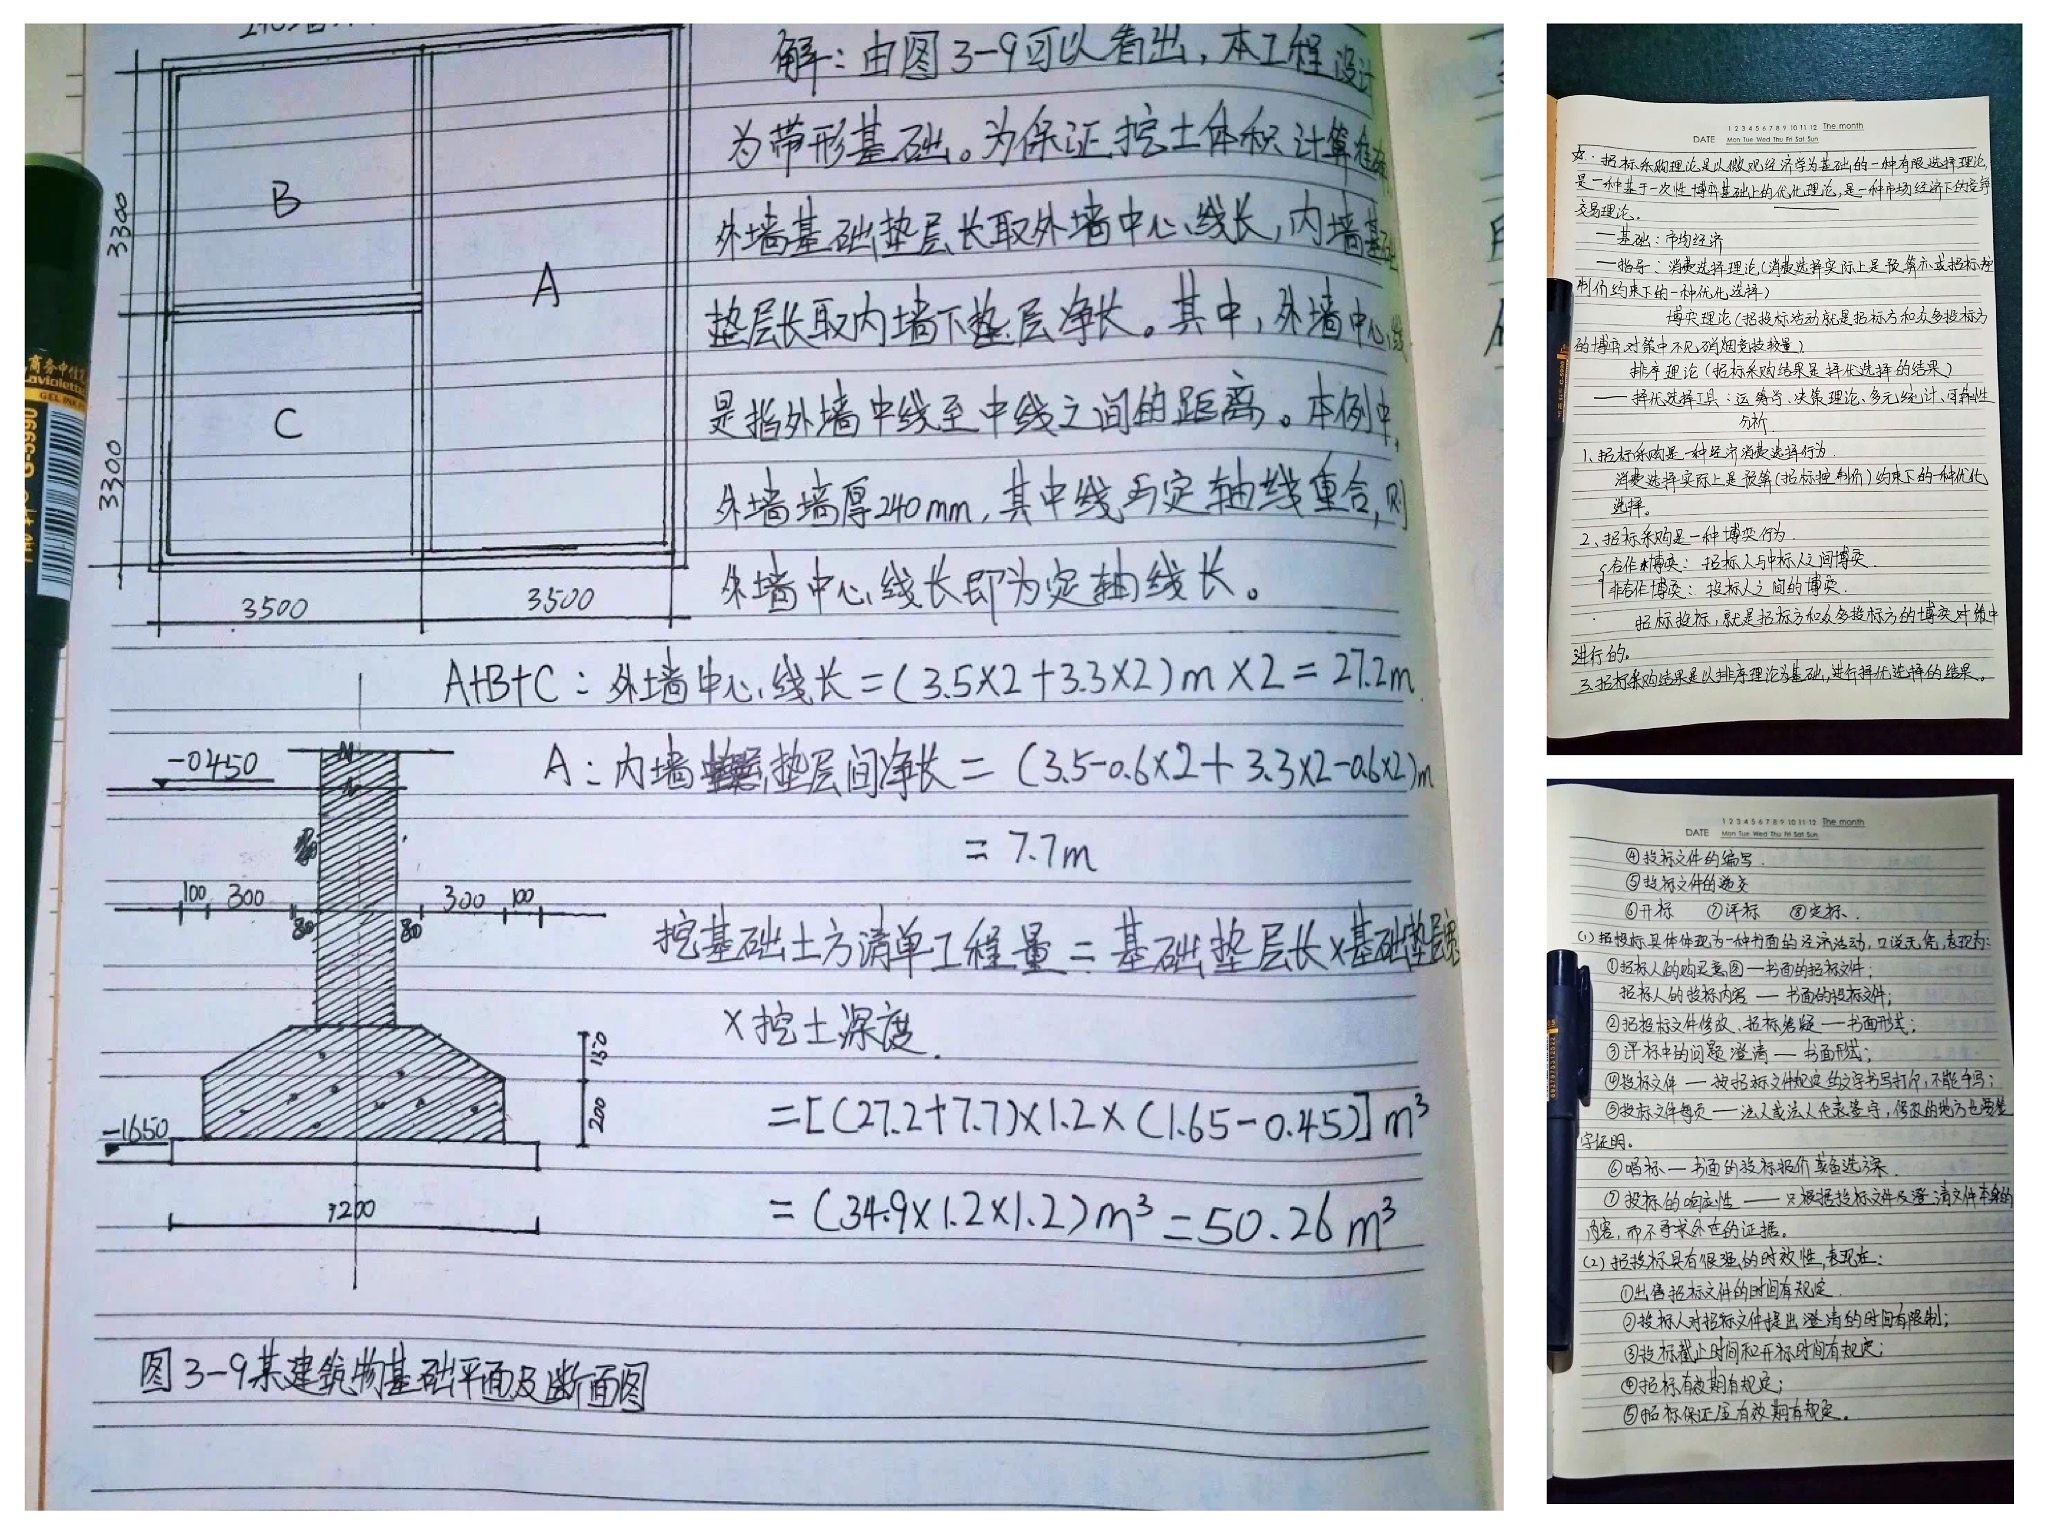 解：由图3-9可以看出，本工程设计
为带形基础。为保证挖土体积计算准确，
外墙基础垫层长取外墙中心线长，内墙基础
垫层长取内墙下垫层净长。其中，外墙中心线
是指外墙中线至中线之间的距离。本例中，
外墙墙厚240mm，其中线与定轴线重合，则
外墙中心线长即为定轴线长。
B
A
C
3300
3300
3500
3500
A+B+C：外墙中心线长＝(3.5×2+3.3×2)m×2＝27.2m
A：内墙垫层间净长＝(3.5-0.6×2+3.3×2-0.6×2)m
＝7.7m
挖基础土方清单工程量＝基础垫层长×基础垫层宽
×挖土深度.
＝[(27.2+7.7)×1.2×(1.65-0.45)]m³
＝(34.9×1.2×1.2)m³＝50.26m³
-0450
100 300 300 100
80 80
150
200
-1650
1200
图3-9某建筑物基础平面及断面图
商务中性笔
GEL INK
DATE 1 2 3 4 5 6 7 8 9 10 11 12 The month
Mon Tue Wed Thu Fri Sat Sun
招标采购理论是以微观经济学为基础的一种有限选择理论,
是一种基于一次性博弈基础上的优化理论,是一种市场经济下的竞争
交易理论。
—基础：市场经济
—指导：消费选择理论(消费选择实际上是预算亦或招标控
制价约束下的一种优化选择)
博弈理论(招投标活动就是招标方和众多投标方
的博弈对策中不见硝烟竞技较量)
排序理论(招标采购结果是择优选择的结果)
——择优选择工具：运筹学、决策理论、多元统计、可靠性
分析.
1、招标采购是一种经济消费选择行为.
消费选择实际上是预算(招标控制价)约束下的一种优化
选择。
2、招标采购是一种博弈行为.
合作博弈：招标人与中标人之间博弈.
非合作博弈：投标人之间的博弈.
招标投标，就是招标方和众多投标方的博弈对策中
进行的。
3.招标采购结果是以排序理论为基础,进行择优选择的结果。
DATE 1 2 3 4 5 6 7 8 9 10 11 12 The month
Mon Tue Wed Thu Fri Sat Sun
④投标文件的编写.
⑤投标文件的递交
⑥开标 ⑦评标 ⑧定标.
(1)招投标具体体现为一种书面的经济活动,口说无凭,表现为：
①招标人的购买意图—书面的招标文件；
招标人的投标内容—书面的投标文件；
②招投标文件修改、招标答疑—书面形式；
③评标中的问题澄清—书面形式；
④投标文件—按招标文件规定的文字书写打印,不能手写；
⑤投标文件每页—法人或法人代表签字,修改的地方也要签
字证明。
⑥唱标—书面的投标报价或备选方案.
⑦投标的响应性——只根据投标文件及澄清文件本身的
内容,而不寻求外在的证据。
(2)招投标具有很强的时效性,表现在：
①出售招标文件的时间有规定.
②投标人对招标文件提出澄清的时间有限制；
③投标截止时间和开标时间有规定；
④招标有效期有规定；
⑤招标保证金有效期有规定。